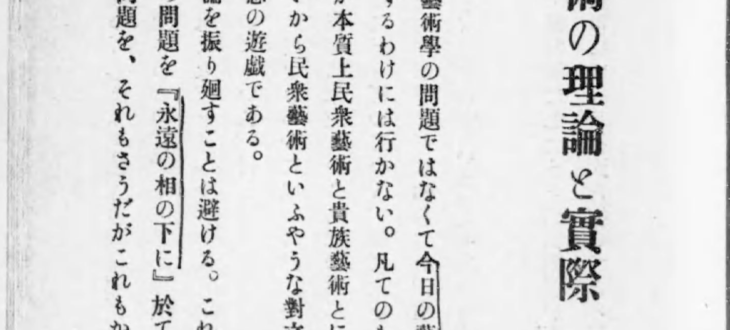 の理論と實際
藝術學の問題ではなくて今日の藝
するわけには行かない。凡てのも
本質上民衆藝術と貴族藝術とに
から民衆藝術といふやうな對立
の遊戯である。
を振り廻すことは避ける。これ
問題を『永遠の相の下に』於て
問題を、それもさうだがこれもか